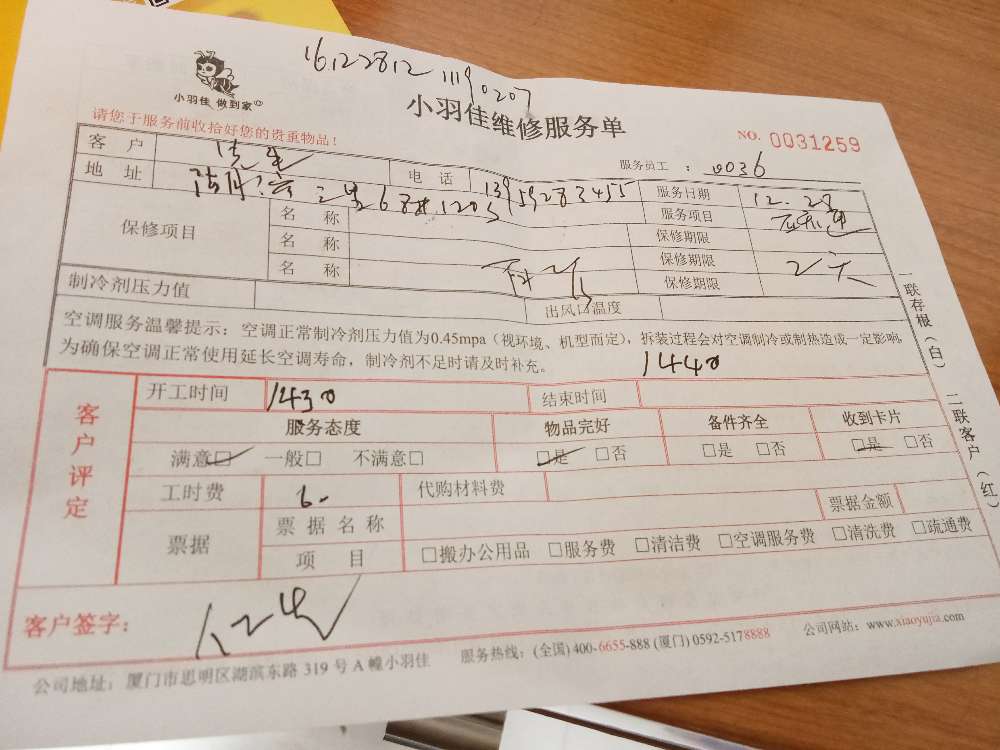 16122812 11190207
小羽佳 做到家
小羽佳维修服务单
请您于服务前收拾好您的贵重物品!
NO. 0031259
服务员工 : 0036
客 户 电 话 13959283455 服务日期 12.28
地 址 服务项目
保修项目 名 称 保修期限
名 称 保修期限
名 称 保修期限
制冷剂压力值 出风口温度
空调服务温馨提示: 空调正常制冷剂压力值为0.45mpa (视环境、机型而定), 拆装过程会对空调制冷或制热造成一定影响,
为确保空调正常使用延长空调寿命, 制冷剂不足时请及时补充。
客户评定
开工时间 1430 结束时间 1440
服务态度 物品完好 备件齐全 收到卡片
满意□ 一般□ 不满意□ □是 □否 □是 □否 □是 □否
工时费 代购材料费
票据 票据名称 票据金额
项 目 □搬办公用品 □服务费 □清洁费 □空调服务费 □清洗费 □疏通费
客户签字:
公司地址: 厦门市思明区湖滨东路 319 号 A 幢小羽佳 服务热线: (全国) 400-6655-888 (厦门) 0592-5178888 公司网站: www.xiaoyujia.com
一联存根 (白) 二联客户 (红)